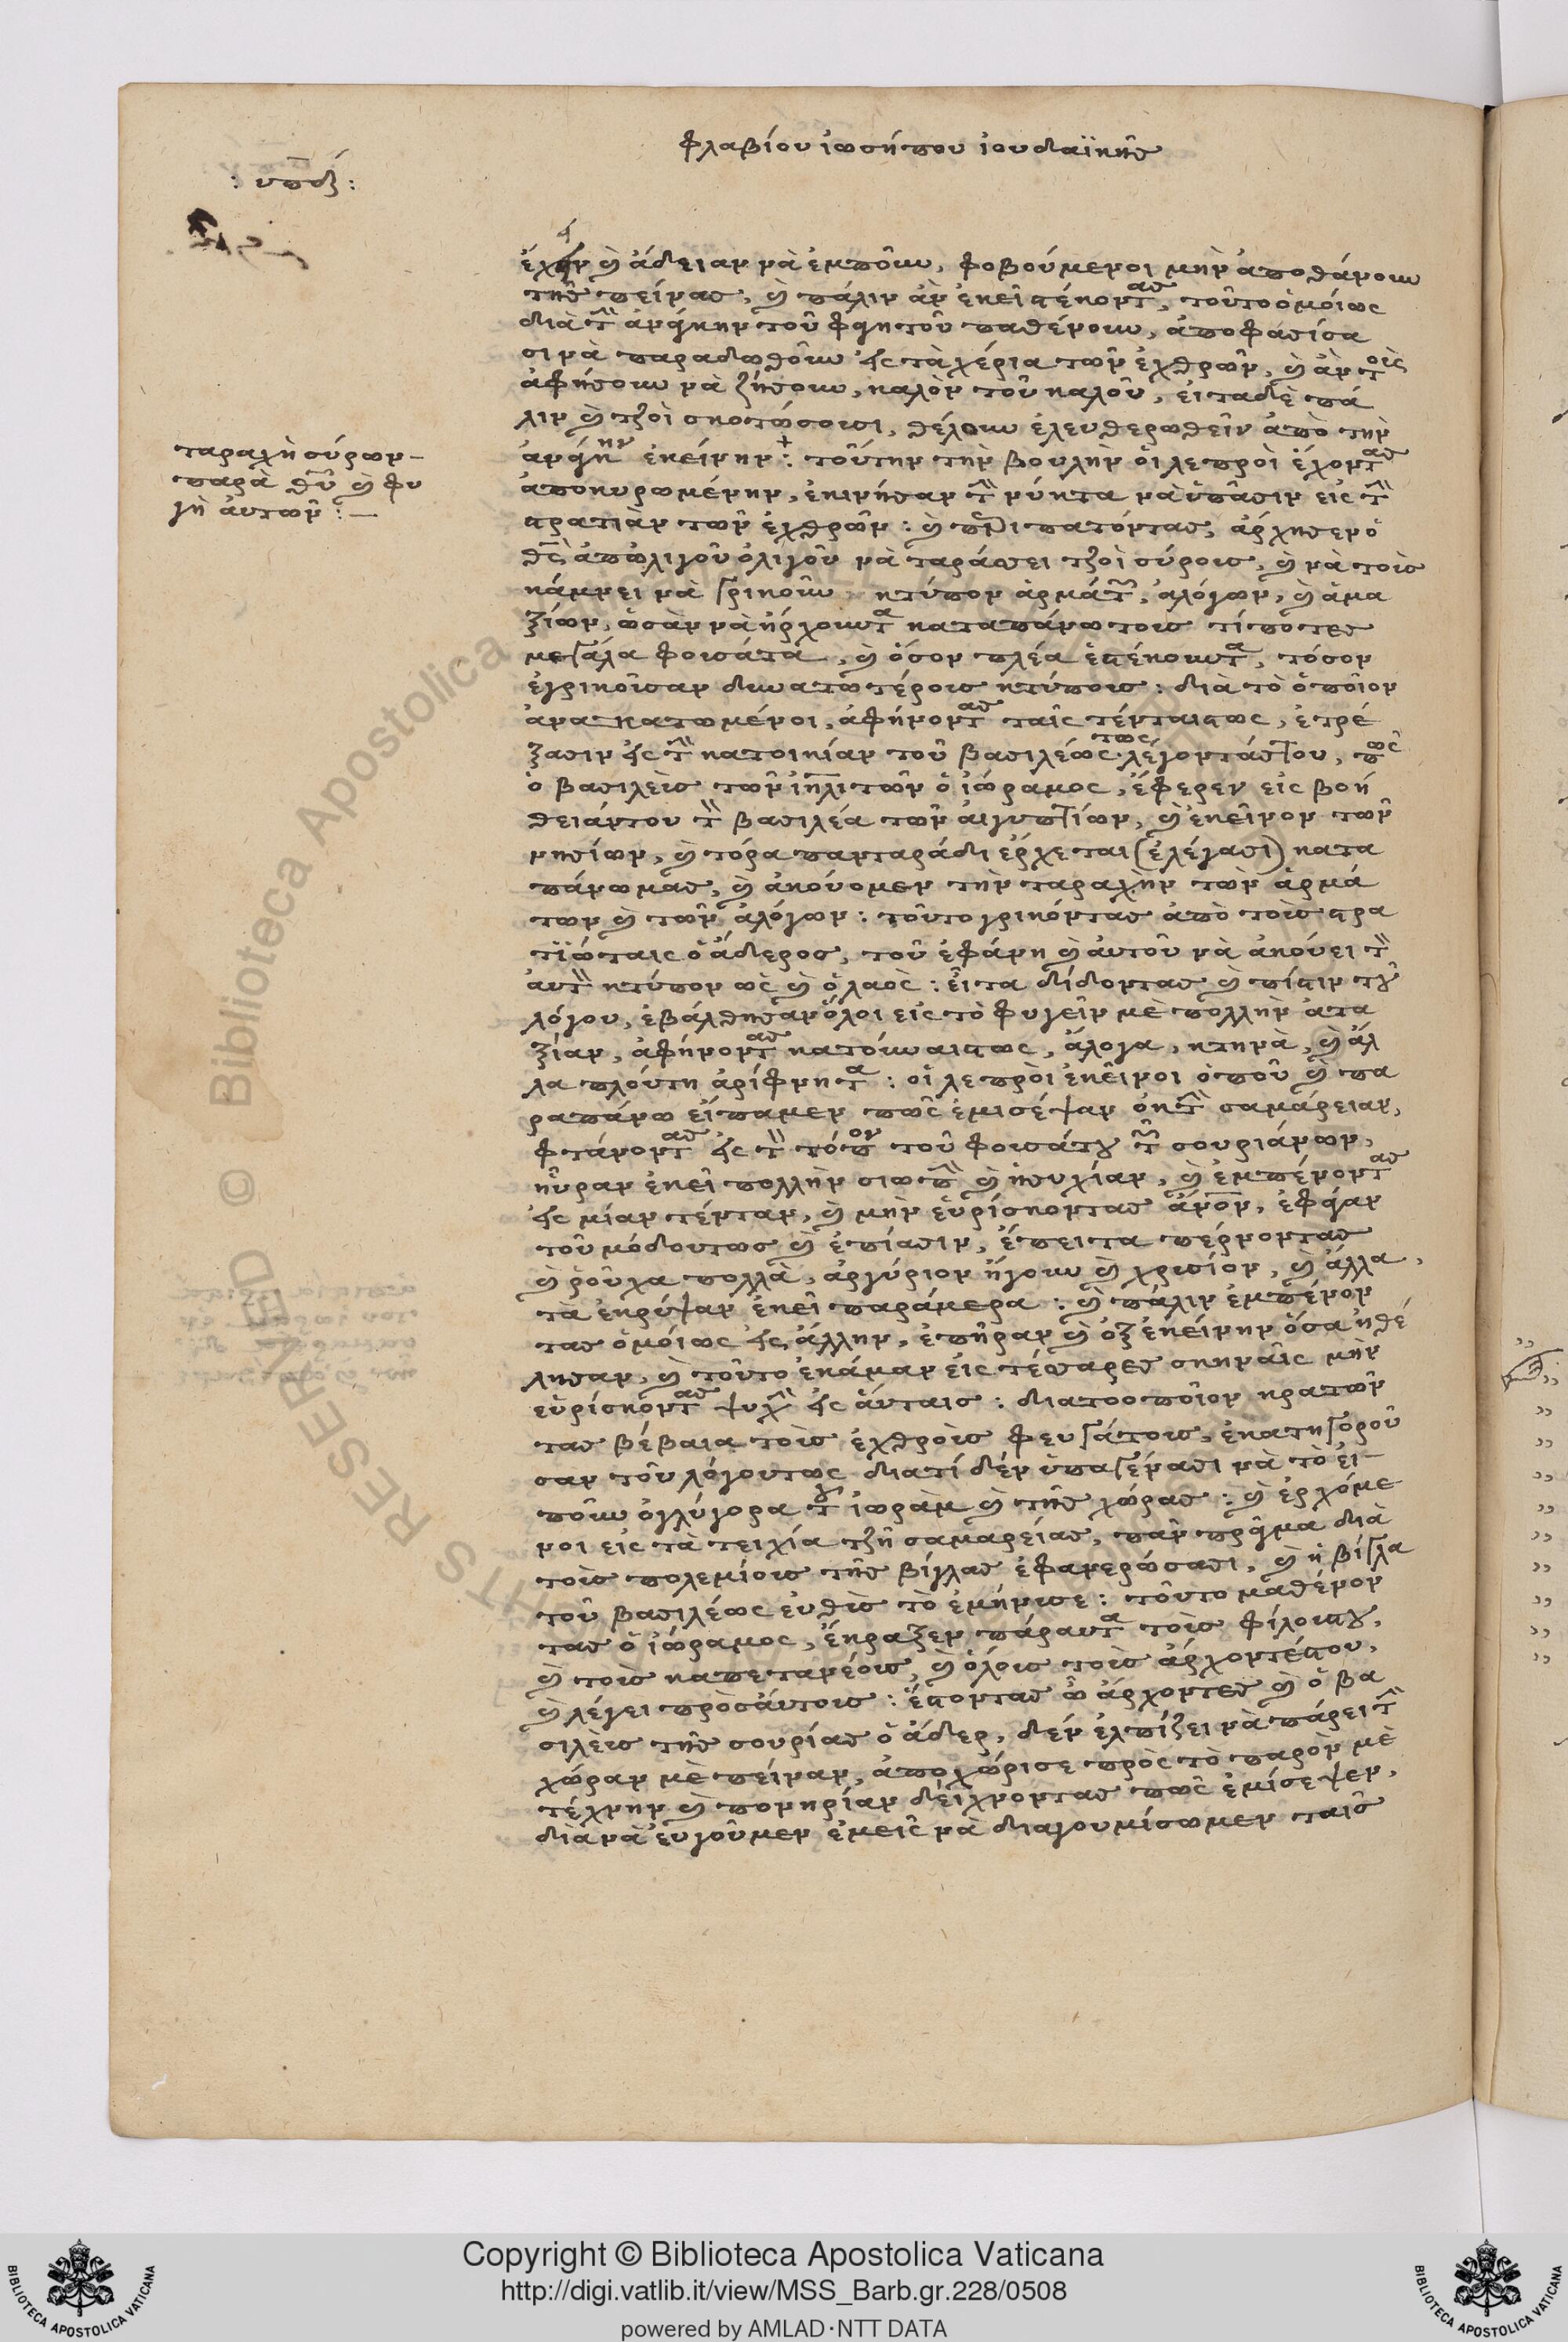 φλαβίου ἰωσήπου ἰουδαϊκῆς
ἔχειν καὶ ἄδειαν νὰ ἐμποῦν, φοβούμενοι μὴν ἀποθάνουν
τῆς πείνας, καὶ πάλιν ἂν ἐκεῖ στέκοντας, τοῦτο ὁμοίως
διὰ τὴν ἀνάγκην τοῦ φαγητοῦ παθένουν, ἀποφασίσα
σι νὰ παραδωθοῦν εἰς τὰ χέρια τῶν ἐχθρῶν, καὶ ἂν τοὺς
ἀφήσουν νὰ ζήσουν, καλὸν τοῦ καλοῦ, εἰτα δὲ πά
λιν καὶ τζοὶ σκοτώσουσι, θέλουν ἐλευθερωθεῖν ἀπὸ τὴν
ἀνάγκην ἐκείνην: τούτην τὴν βουλὴν οἱ λεπροὶ ἔχοντας
ἀποκυρωμένην, ἐκινήσαν τὴν νύκτα νὰ ὑπᾶσιν εἰς τὴν
στρατιὰν τῶν ἐχθρῶν: καὶ περιπατόντας, ἀρχησεν ὁ
θεὸς ἀπὸ λιγοῦ ὀλιγοῦ νὰ ταράσσει τζοὶ σύρους, καὶ νὰ τοὺς
κάμνει νὰ γρικοῦν κτύπον ἁρμάτων, ἀλόγων, καὶ ἁμα
ξίων, ὡσὰν νὰ ἤρχουντα καταπάνω τους τίποτες
μεγάλα φουσάτα, καὶ ὅσον πλέα ἐστέκουντα, τόσον
ἐγρικοῦσαν δυνατωτέρους κτύπους: διὰ τὸ ὁποῖον
ἀνακατωμένοι, ἀφήνοντας ταῖς τένταις τως, ἐτρέ
ξασιν εἰς τὴν κατοικίαν τοῦ βασιλέως τως λέγοντάς του, πῶς
ὁ βασιλεὺς τῶν ἰσραηλιτῶν ὁ ἰώραμος, ἔφερεν εἰς βοή
θειάν του τὸν βασιλέα τῶν αἰγυπτίων, καὶ ἐκεῖνον τῶν
νησίων, καὶ τόρα πανταράδι ἔρχεται (ἐλέγασι) κατα
πάνω μας, καὶ ἀκούομεν τὴν ταραχὴν τῶν ἁρμά
των καὶ τῶν ἀλόγων: τοῦτο γρικόντας ἀπὸ τοὺς στρα
τϊώταις ὁ ἄδερος, τοῦ ἐφάνη καὶ αὐτοῦ νὰ ἀκούει τὸν
αὐτὸν κτύπον ὡς καὶ ὁ λαὸς: εἶτα δίδοντας καὶ πίστιν τοῦ
λόγου, ἐβάλθησαν ὅλοι εἰς τὸ φυγεῖν μὲ πολλὴν ἀτα
ξίαν, ἀφήνοντας κατόμου αὐτως, ἄλογα, κτηνὰ, καὶ ἄλ
λα πλούτη ἀρίφνητα: οἱ λεπρὸι ἐκεῖνοι ὁποῦ καὶ πα
ραπάνω εἴπαμεν πῶς ἐμισέψαν ὀκ τὴν σαμάρειαν,
φτάνοντας εἰς τὸν τόπον τοῦ φουσάτου τῶν σουριάνων,
ηὗραν ἐκεῖ πολλὴν σιωπὴν καὶ ἡσυχίαν, καὶ ἐμπένοντας
εἰς μίαν τένταν, καὶ μὴν εὑρίσκοντας ἄνθρωπον, ἐφάγαν
τοῦ μόδου τως καὶ ἐπίασιν, ἔπειτα πέρνοντας
καὶ ῥοῦχα πολλὰ, ἀργύριον ἤγουν καὶ χρυσίον, καὶ ἄλλα,
τὰ ἐκρύψαν ἐκεῖ παράμερα: καὶ πάλιν ἐμπένον
τας ὁμοίως εἰς ἄλλην, ἐπῆραν καὶ ὀξ ἐκείνην ὅσα ἠθέ
λησαν, καὶ τοῦτο ἐκάμαν εἰς τέσσαρες σκηναῖς μὴν
εὑρίσκοντας ψυχὴν εἰς αὐταις: διατοοποῖον κρατῶν
τας βέβαια τοὺς ἐχθροὺς φευγάτους, ἐκατηγοροῦ
σαν τοῦ λόγου τως διατί δὲν ὑπαγένασι νὰ τὸ εἰ
ποῦν ὀγλύγορα τοῦ ἰωρὰμ καὶ τῆς χώρας: καὶ ἐρχόμε
νοι εἰς τὰ τειχία τζῆ σαμαρείας, πᾶν πρᾶγμα διὰ
τοὺς πολεμίους τῆς βίγλας ἐφανερώσασι, καὶ ἡ βίγλα
τοῦ βασιλέως εὐθὺς τὸ ἐμήνυσε: τοῦτο μαθένον
τας ὁ ἰώραμος, ἔκραξεν πάραυτα τοὺς φίλους του,
καὶ τοὺς καπετανέους, καὶ ὅλους τοὺς ἀρχοντές του,
καὶ λέγει πρὸς αὐτους: ἔστοντας ὦ ἄρχοντες καὶ ὁ βα
σιλεὺς τῆς σουρίας ὁ ἄδερ, δὲν ἐλπίζει νὰ πάρει τὴν
χώραν μὲ πείναν, ἀποχώρισε πρὸς τὸ παρὸν μὲ
τέχνην καὶ πονηρίαν δείχνοντας πῶς ἐμίσεψεν,
διὰ νὰ εὐγοῦμεν ἐμεῖς νὰ διαγουμίσωμεν ταῖς
ταραχὴ σύρων
παρὰ θεοῦ καὶ φυ
γὴ αὐτῶν:
Copyright © Biblioteca Apostolica Vaticana
http://digi.vatlib.it/view/MSS_Barb.gr.228/0508
powered by AMLAD·NTT DATA